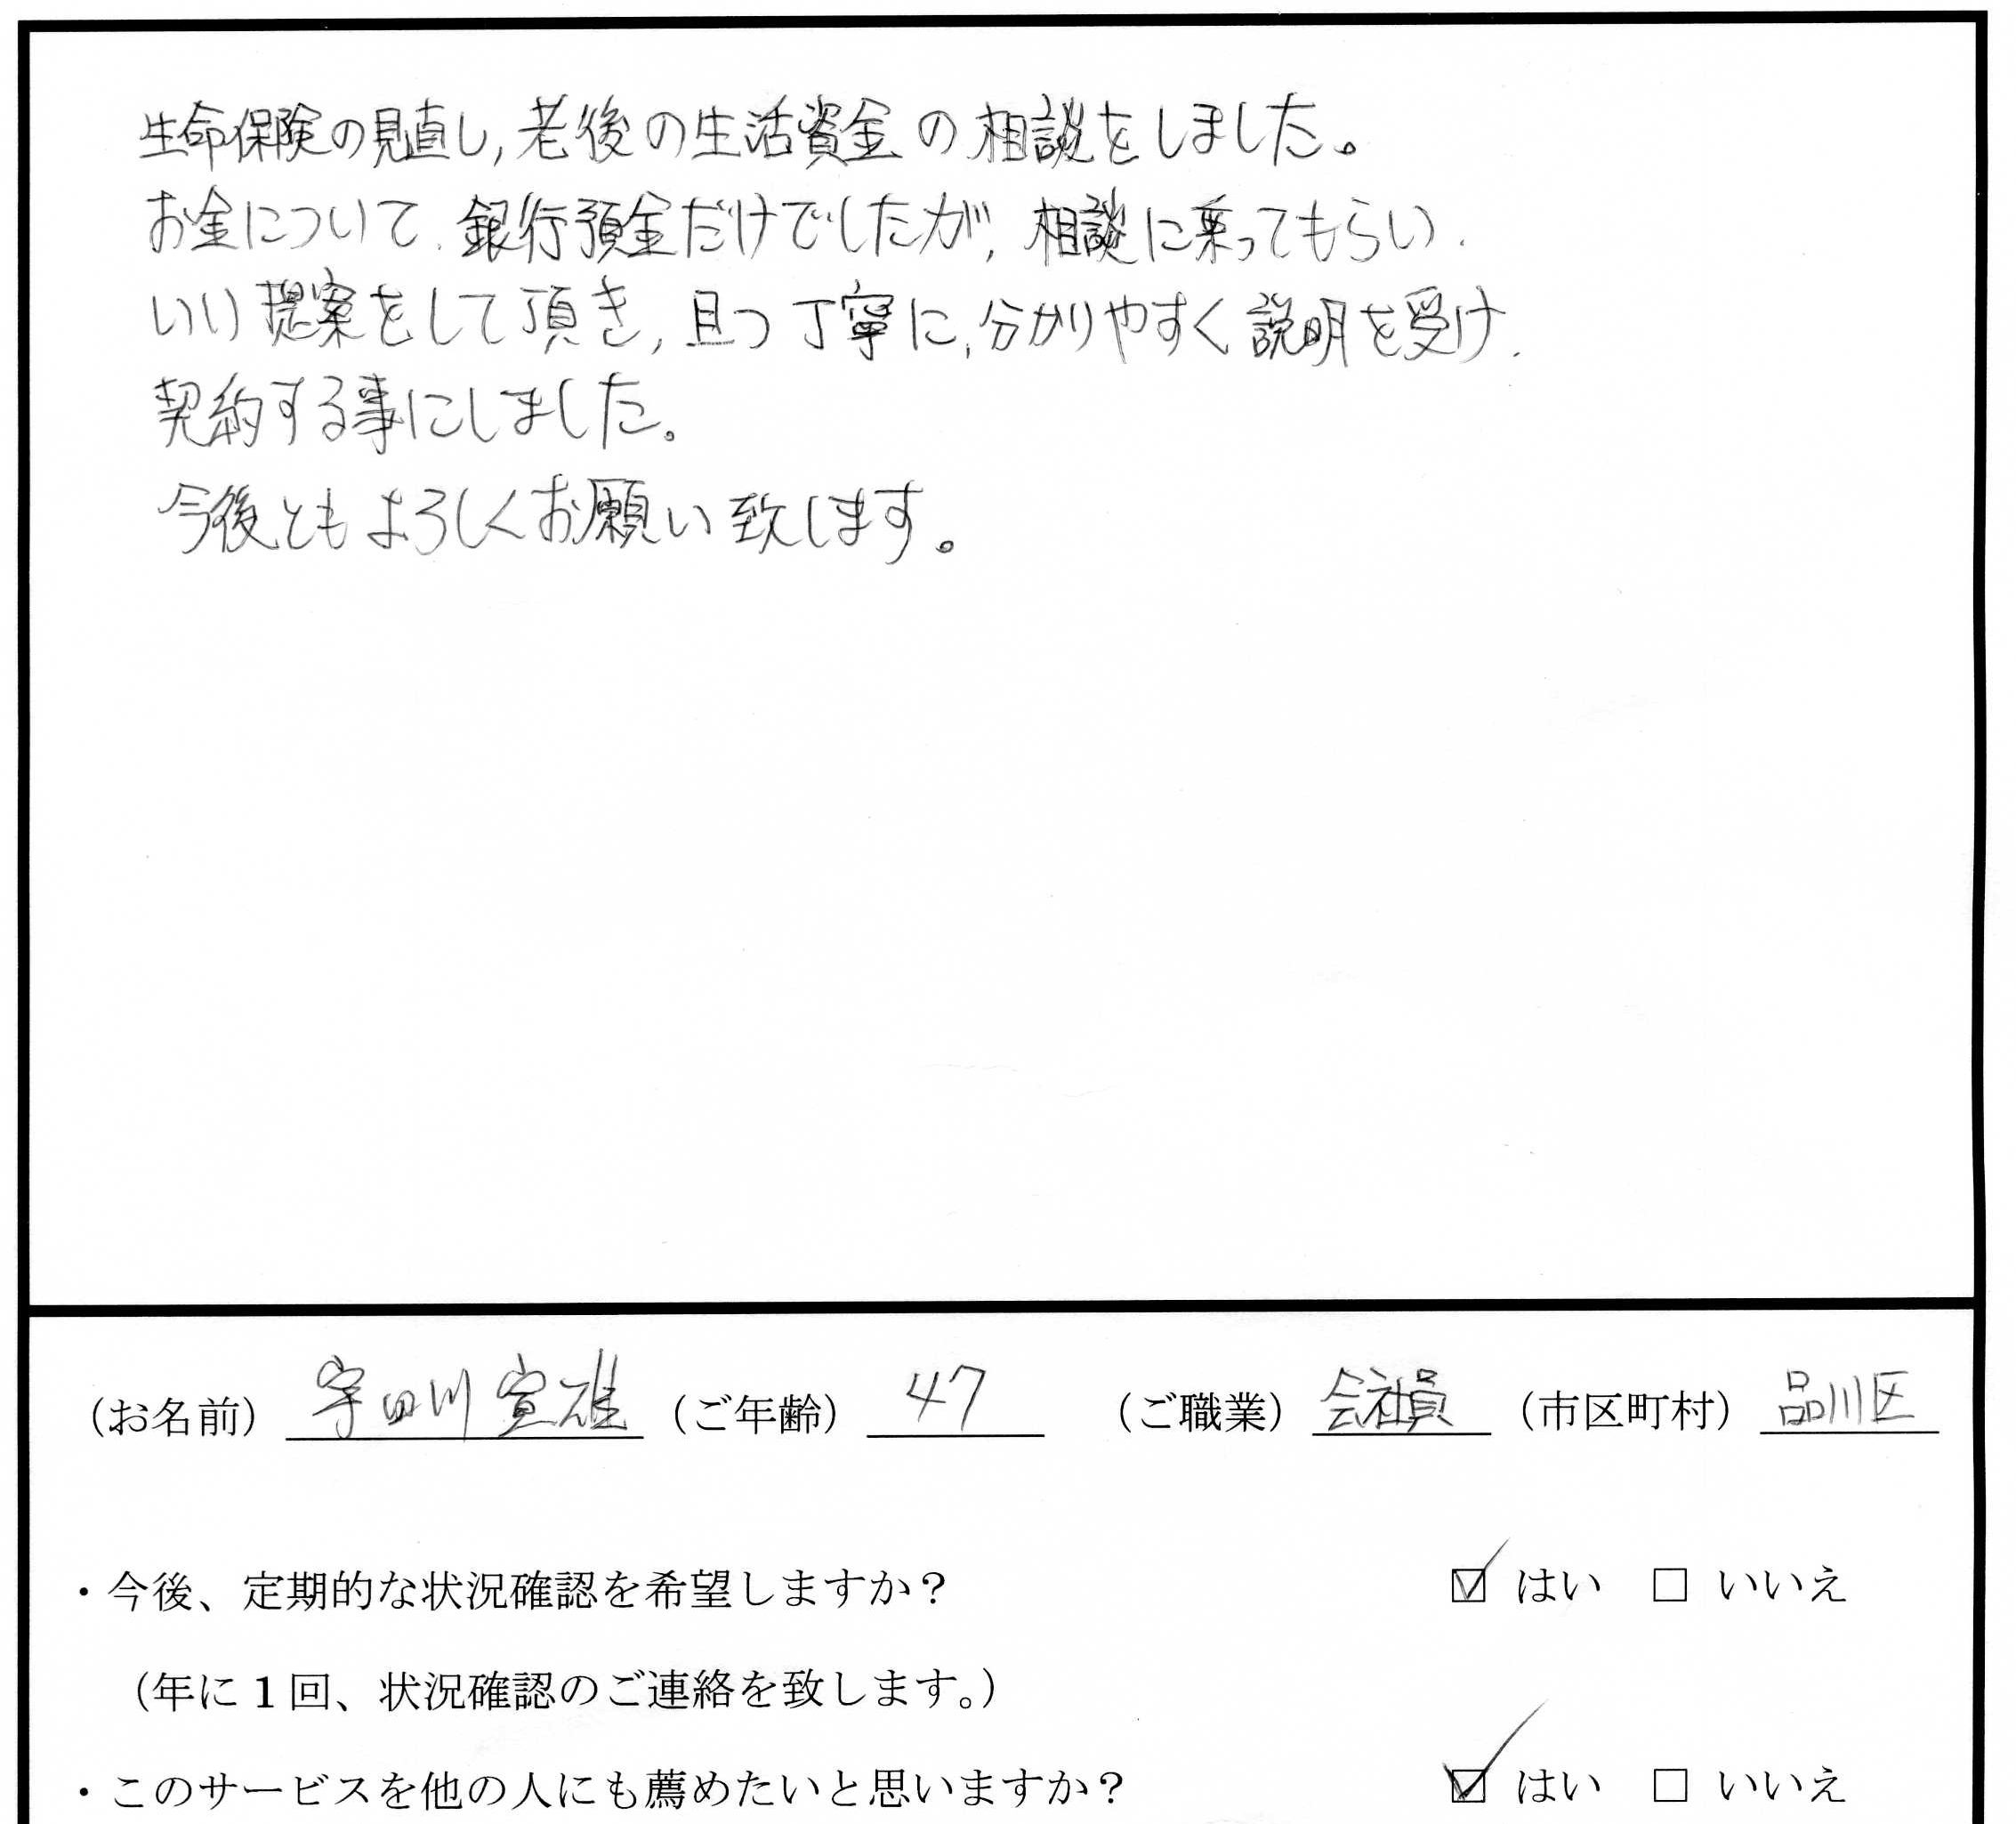 生命保険の見直し,老後の生活資金の相談をしました。
お金について、銀行預金だけでしたが,相談に乗ってもらい、
いい提案をして頂き,且つ丁寧に,分かりやすく説明を受け、
契約する事にしました。
今後ともよろしくお願い致します。
（お名前）宇田川 宣雄（ご年齢）47（ご職業）会社員（市区町村）品川区
・今後、定期的な状況確認を希望しますか？ ☑ はい □ いいえ
（年に１回、状況確認のご連絡を致します。）
・このサービスを他の人にも薦めたいと思いますか？ ☑ はい □ いいえ